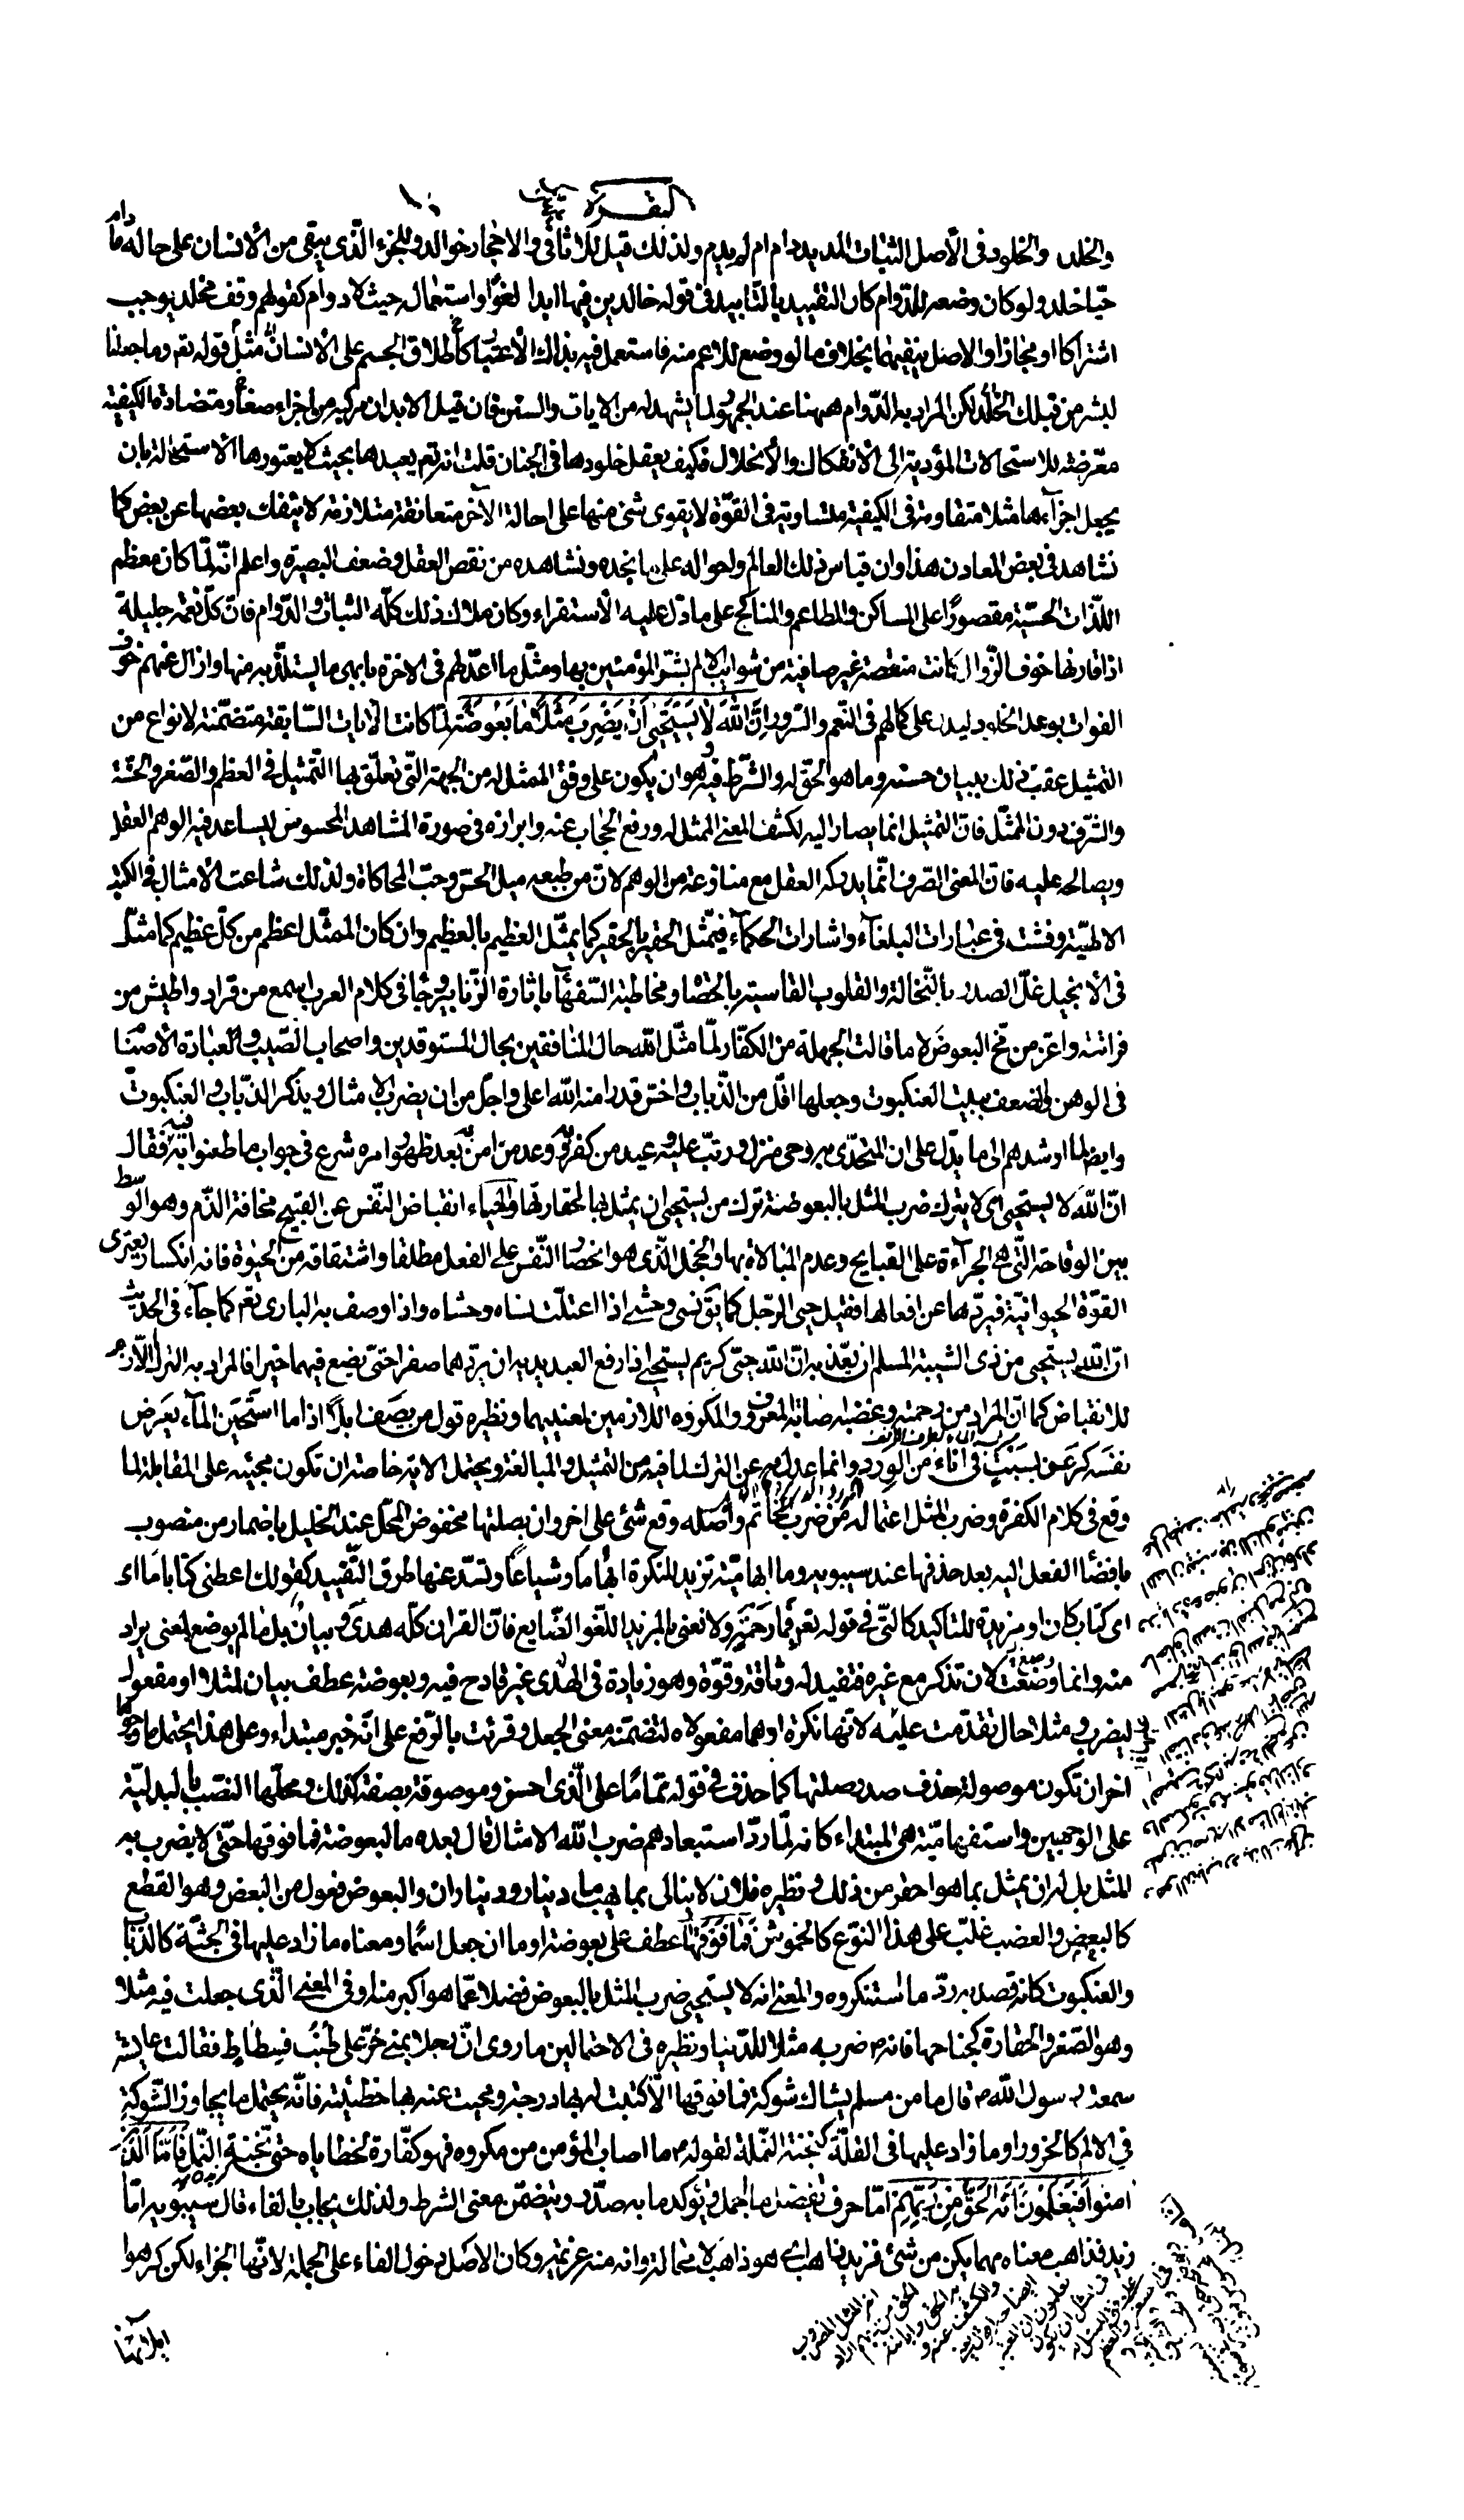 البقرة
والخلد والخلود في الأصل الثبات المديد دام ام لم يدم ولذلك قيل للاثافي والاحجار خوالد وللجزء الّذي يبقى من الانسان على حاله ما دام
حيّا خلد ولو كان وضعه للدّوام كان التقييد بالتّابيد في قوله خالدين فيها ابدا لغوًا واستعماله حيث لا دوام كقولهم وقف مخلد يوجب
اشتراكا او مجازا والاصل ينفيهما بخلاف ما لو وضع للاعم منه فاستعمل فيه بذلك الاعتبار كاطلاق الجسم على الانسان مثل قوله تع وما جعلنا
لبشر من قبلك الخلد لكن المراد به الدّوام ههنا عند الجمهور لما يشهد له من الايات والسنن فان قيل الابدان مركبة من اجزاء متضادة الكيفية
معرّضة للاستحالات المؤدية الى الانفكاك والانحلال فكيف يعقل خلودها في الجنان قلت انه تع يعيدها بحيث لا يعتورها الاستحالة بان
يجعل اجزاءها مثلا متقاومة في الكيفية متساوية في القوّة لا يقوى شئ منها على احالة الآخر متعانقة متلازمة لا ينفك بعضها عن بعض كما
نشاهد في بعض المعادن هذا وان قياس ذلك العالم واحواله على ما نجده ونشاهده من نقص العقل وضعف البصيرة واعلم انّه لمّا كان معظم
اللّذات الحسّية مقصورًا على المساكن والمطاعم والمناكح على ما دلّ عليه الاستقراء وكان ملاك ذلك كلّه الثبات والدّوام فان كلّ نعمة جليلة
اذا قارنها خوف الزّوال كانت منغصة غير صافية من شوايب الالم بشّر المؤمنين بها ومثّل ما اعدّ لهم في الاخرة بابهى ما يستلذّ به منها وازال عنهم خوف
الفوات بوعد الخلود ليدل على كمالهم في النّعم والسّرور اِنَّ اللهَ لَا يَسْتَحْيِي اَنْ يَضْرِبَ مَثَلًا مَا بَعُوضَةً لمّا كانت الايات السّابقة متضمّنة لانواع من
التمثيل عقب ذلك ببيان حسنه وما هو الحقّ له والشّرط فيه وهو ان يكون على وفق الممثل له من الجهة الّتي تعلّق بها التّمثيل في العظم والصّغر والخسّة
والشّرف دون الممثّل فان التمثيل انما يصار اليه لكشف المعنى الممثل له ورفع الحجاب عنه وابرازه في صورة المشاهد المحسوس ليساعد فيه الوهم العقل
ويصالحه عليه فان المعنى الصّرف انّما يدركه العقل مع منازعة من الوهم لان من طبعه ميل الحسّ وحبّ المحاكاة ولذلك شاعت الامثال في الكتب
الالهيّة وفشت في عبارات البلغاء واشارات الحكماء فيمثّل الحقير بالحقير كما يمثّل العظيم بالعظيم وان كان الممثّل اعظم من كلّ عظيم كما مثّل
في الانجيل غلّ الصدر بالنّخالة والقلوب القاسية بالحصاة ومخاطبة السّفهاء باثارة الزّنابير وجاء في كلام العرب اسمع من قراد واطيش من
فراشة واعزّ من مخّ البعوض لا ما قالت الجهلة من الكفّار لمّا مثّل الله حال المنافقين بحال المستوقدين واصحاب الصّيّب وعبادة الاصنام
في الوهن والضعف ببيت العنكبوت وجعلها اقلّ من الذّباب واخسّ قدرا منه الله اعلى واجلّ من ان يضرب الامثال ويذكر الذّباب والعنكبوت
وايضا لما ارشدهم الى ما يدلّ على ان المتحدّى به وحي منزل ورتّب عليه وعيد من كفر به ووعد من امن به بعد ظهور امره شرع في جواب ما طعنوا به فيه فقال
انّ الله لا يستحيي اي لا يترك ضرب المثل بالبعوضة ترك من يستحيي ان يمثل بها لحقارتها والحياء انقباض النّفس عن القبيح مخافة الذّم وهو الوسط
بين الوقاحة الّتي هي الجرأة على القبايح وعدم المبالاة بها والخجل الّذي هو انحصار النّفس على الفعل مطلقا واشتقاقه من الحيوة فانه انكسار يعتري
القوّة الحيوانيّة فيردّها عن افعالها فقيل حيي الرّجل كما يق نسي وحشي اذا اعتلّت نساه وحشاه واذا وصف به الباري تع كما جاء في الحديث
انّ الله يستحيي من ذي الشيبة المسلم ان يعّذبه انّ الله حيّ كريم يستحيي اذا رفع العبد يديه ان يردّهما صفرا حتى يضع فيهما خيرا فالمراد به الترك اللّازم
للانقباض كما انّ المراد من رحمته وغضبه اصابة المعروف والمكروه اللّازمين لمعنييهما ونظيره قول من يصف ابلا اذا ما استحين الماء يعرض
نفسه كرعن بسبت في اناء من الورد وانما عدل به عن الترك لما فيه من التمثيل والمبالغة ويحتمل الاية خاصّة ان تكون مجيئه على المقابلة لما
وقع في كلام الكفرة وضرب المثل اعتماله من ضرب الخاتم واصله وقع شئ على اخر وان بصلتها مخفوض المحلّ عند الخليل باضمار من منصوب
بافضاء الفعل اليه بعد حذفها عند سيبويه وما ابهاميّة تزيد للنكرة ابهاما وشياعًا وتسدّ عنها طرق التّقييد كقولك اعطني كتابا ما اي
اي كتاب كان او مزيدة للتاكيد كالّتي في قوله تع فبما رحمة ولا نعني بالمزيد اللّغو الضّايع فانّ القران كلّه هدى وبيان بل ما لم يوضع لمعنى يراد
منه وانما وضعت لان تذكر مع غيره فتفيد له وثاقة وقوّة وهو زيادة في الهدى غير قادح فيه وبعوضة عطف بيان لمثلا او مفعول
ليضرب ومثلا حال تقدّمت عليه لانها نكرة او هما مفعولاه لتضمّنه معنى الجعل وقرئت بالرّفع على انّه خبر مبتداء وعلى هذا يحتمل ما وجوها
اخر ان تكون موصولة حذف صدر صلتها كما حذف في قوله تمامًا على الّذي احسن وموصوفة بصفة كذلك ومحلّها النّصب بالبدليّة
على الوجهين واستفهاميّة هي المبتداء كانه لمّا ردّ استبعادهم ضرب الله الامثال قال بعده ما البعوضة فما فوقها حتّى لا يضرب به
المثل بل له ان يمثل بما هو احقر من ذلك ونظيره فلان لا يبالي بما يهب ما دينار ودينا ران والبعوض فعول من البعض وهو القطع
كالبضع والعضب غلّب على هذا النّوع كالخموش فَمَا فَوْقَهَا عطف على بعوضة او ما ان جعل اسمًا ومعناه ما زاد عليها في الجثّة كالذّباب
والعنكبوت كانه قصد به ردّ ما استنكروه والمعنى انه لا يستحيي ضرب المثل بالبعوض فضلا عمّا هو اكبر منه او في المعنى الّذي جعلت فيه مثلا
وهو الصّغر والحقارة كجناحها فانه م ضربه مثلا للدّنيا ونظيره في الاحتمالين ما روي انّ رجلا بمنى خرّ على طنب فسطاط فقالت عايشه
سمعت رسول الله م قال ما من مسلم يشاك شوكة فما فوقها الّا كتبت له بها درجة ومحيت عنه بها خطيئته فانّه يحتمل ما يجاوز الشّوكة
في الالم كالخرور او ما زاد عليها في القلّة كنخبة النّملة لقوله م ما اصاب المؤمن من مكروه فهو كفّارة لخطاياه حتى نخبة النّمل فَاَمَّا الَّذِينَ
امنوا فَيَعْلَمُونَ اَنَّهُ الحَقُّ مِنْ رَبِّهِمْ امّا حرف تفصيل ما اجمل ويؤكد ما به صدّر ويتضمّن معنى الشرط ولذلك يجاب بالفاء قال سيبويه امّا
زيد فذاهب معناه مهما يكن من شئ فزيد ذاهب اي هو ذاهب لا محالة وانه منه عزيمة وكان الاصل دخول الفاء على الجملة لانّها الجزاء لكن كرهوا
ايلائها